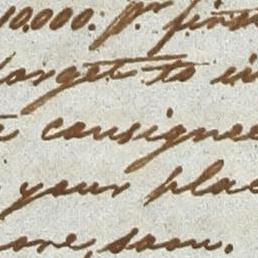 10.000. pr first
forget to in
consignee
your place
more soon.